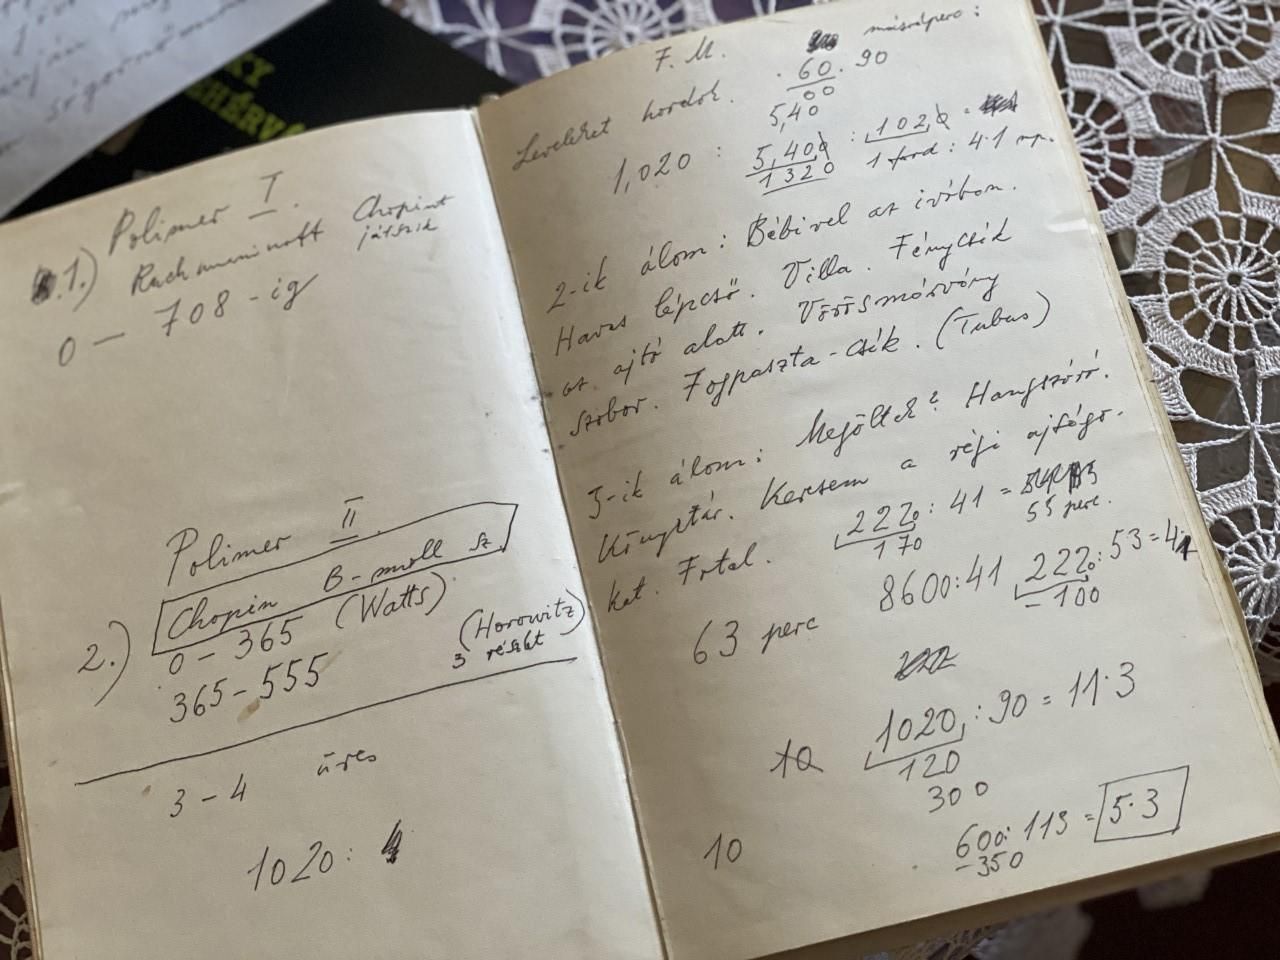 KY
EHÉRVÁ
Polimer I.
1.) Rachmaninoff Chopint
játszik
0 — 708 - ig
Polimer II.
Chopin B-moll sz.
2.) 0 - 365 (Watts)
365 - 555 (Horowitz)
3 részlet
3 - 4 üres
1020 :
F. M.
másodperc :
Leveleket hordok. 60. 90
00
5,40
1,020 : 5,400 : 1020 =
1320 1 ford : 4.1 mp.
2-ik álom : Bébivel az ivóban.
Havas lépcső. Villa. Fénycsík
az ajtó alatt. Vörösmárvány
szobor. Fogpaszta-csík. (Tubus)
3-ik álom : Megöltek? Hangszóró.
Könyvtár. Keresem a régi ajtógo.
ket. 2220 : 41 =
170 55 perc.
8600:41 2220:53=41
-100
63 perc
10 1020 : 90 = 11.3
120
300
10 600:113 = 5.3
-350